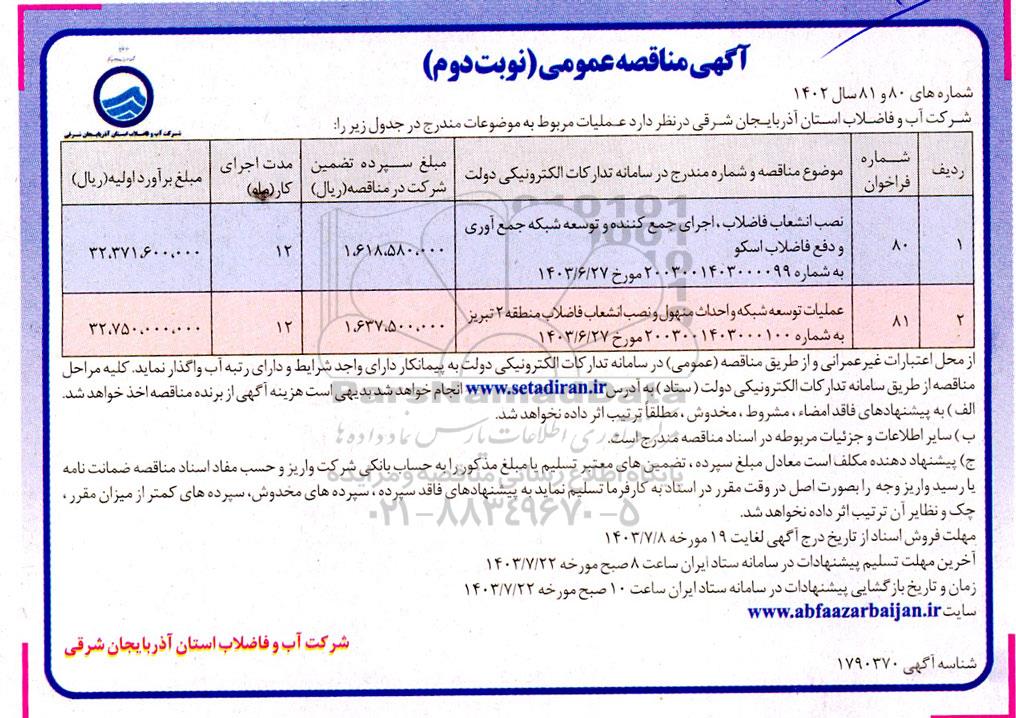 آگهی مناقصه عمومی (نوبت دوم)
شماره های ۸۰ و ۸۱ سال ۱۴۰۲
شرکت آب و فاضلاب استان آذربایجان شرقی درنظر دارد عملیات مربوط به موضوعات مندرج در جدول زیر را:
شرکت آب و فاضلاب استان آذربایجان شرقی
ردیف | شماره فراخوان | موضوع مناقصه و شماره مندرج در سامانه تدارکات الکترونیکی دولت | مبلغ سپرده تضمین شرکت در مناقصه (ریال) | مدت اجرای کار (ماه) | مبلغ برآورد اولیه (ریال)
۱ | ۸۰ | نصب انشعاب فاضلاب، اجرای جمع کننده و توسعه شبکه جمع آوری و دفع فاضلاب اسکو به شماره ۲۰۰۳۰۰۱۴۰۳۰۰۰۰۹۹ مورخ ۱۴۰۳/۶/۲۷ | ۱،۶۱۸،۵۸۰،۰۰۰ | ۱۲ | ۳۲،۳۷۱،۶۰۰،۰۰۰
۲ | ۸۱ | عملیات توسعه شبکه و احداث منهول و نصب انشعاب فاضلاب منطقه ۲ تبریز به شماره ۲۰۰۳۰۰۱۴۰۳۰۰۰۱۰۰ مورخ ۱۴۰۳/۶/۲۷ | ۱،۶۳۷،۵۰۰،۰۰۰ | ۱۲ | ۳۲،۷۵۰،۰۰۰،۰۰۰
از محل اعتبارات غیرعمرانی و از طریق مناقصه (عمومی) در سامانه تدارکات الکترونیکی دولت به پیمانکار دارای واجد شرایط و دارای رتبه آب واگذار نماید. کلیه مراحل
مناقصه از طریق سامانه تدارکات الکترونیکی دولت (ستاد) به آدرس www.setadiran.ir انجام خواهد شد بدیهی است هزینه آگهی از برنده مناقصه اخذ خواهد شد.
الف) به پیشنهادهای فاقد امضاء، مشروط، مخدوش، مطلقاً ترتیب اثر داده نخواهد شد.
ب) سایر اطلاعات و جزئیات مربوطه در اسناد مناقصه مندرج است.
ج) پیشنهاد دهنده مکلف است معادل مبلغ سپرده، تضمین های معتبر تسلیم یا مبلغ مذکور را به حساب بانکی شرکت واریز و حسب مفاد اسناد مناقصه ضمانت نامه
یا رسید واریز وجه را بصورت اصل در وقت مقرر در اسناد به کارفرما تسلیم نماید به پیشنهادهای فاقد سپرده، سپرده های مخدوش، سپرده های کمتر از میزان مقرر،
چک و نظایر آن ترتیب اثر داده نخواهد شد.
مهلت فروش اسناد از تاریخ درج آگهی لغایت ۱۹ مورخه ۱۴۰۳/۷/۸
آخرین مهلت تسلیم پیشنهادات در سامانه ستاد ایران ساعت ۸ صبح مورخه ۱۴۰۳/۷/۲۲
زمان و تاریخ بازگشایی پیشنهادات در سامانه ستاد ایران ساعت ۱۰ صبح مورخه ۱۴۰۳/۷/۲۲
سایت www.abfaazarbaijan.ir
شرکت آب و فاضلاب استان آذربایجان شرقی
شناسه آگهی ۱۷۹۰۳۷۰
ParsNamadData
۰۲۱-۸۸۳۴۹۶۷۰-۵